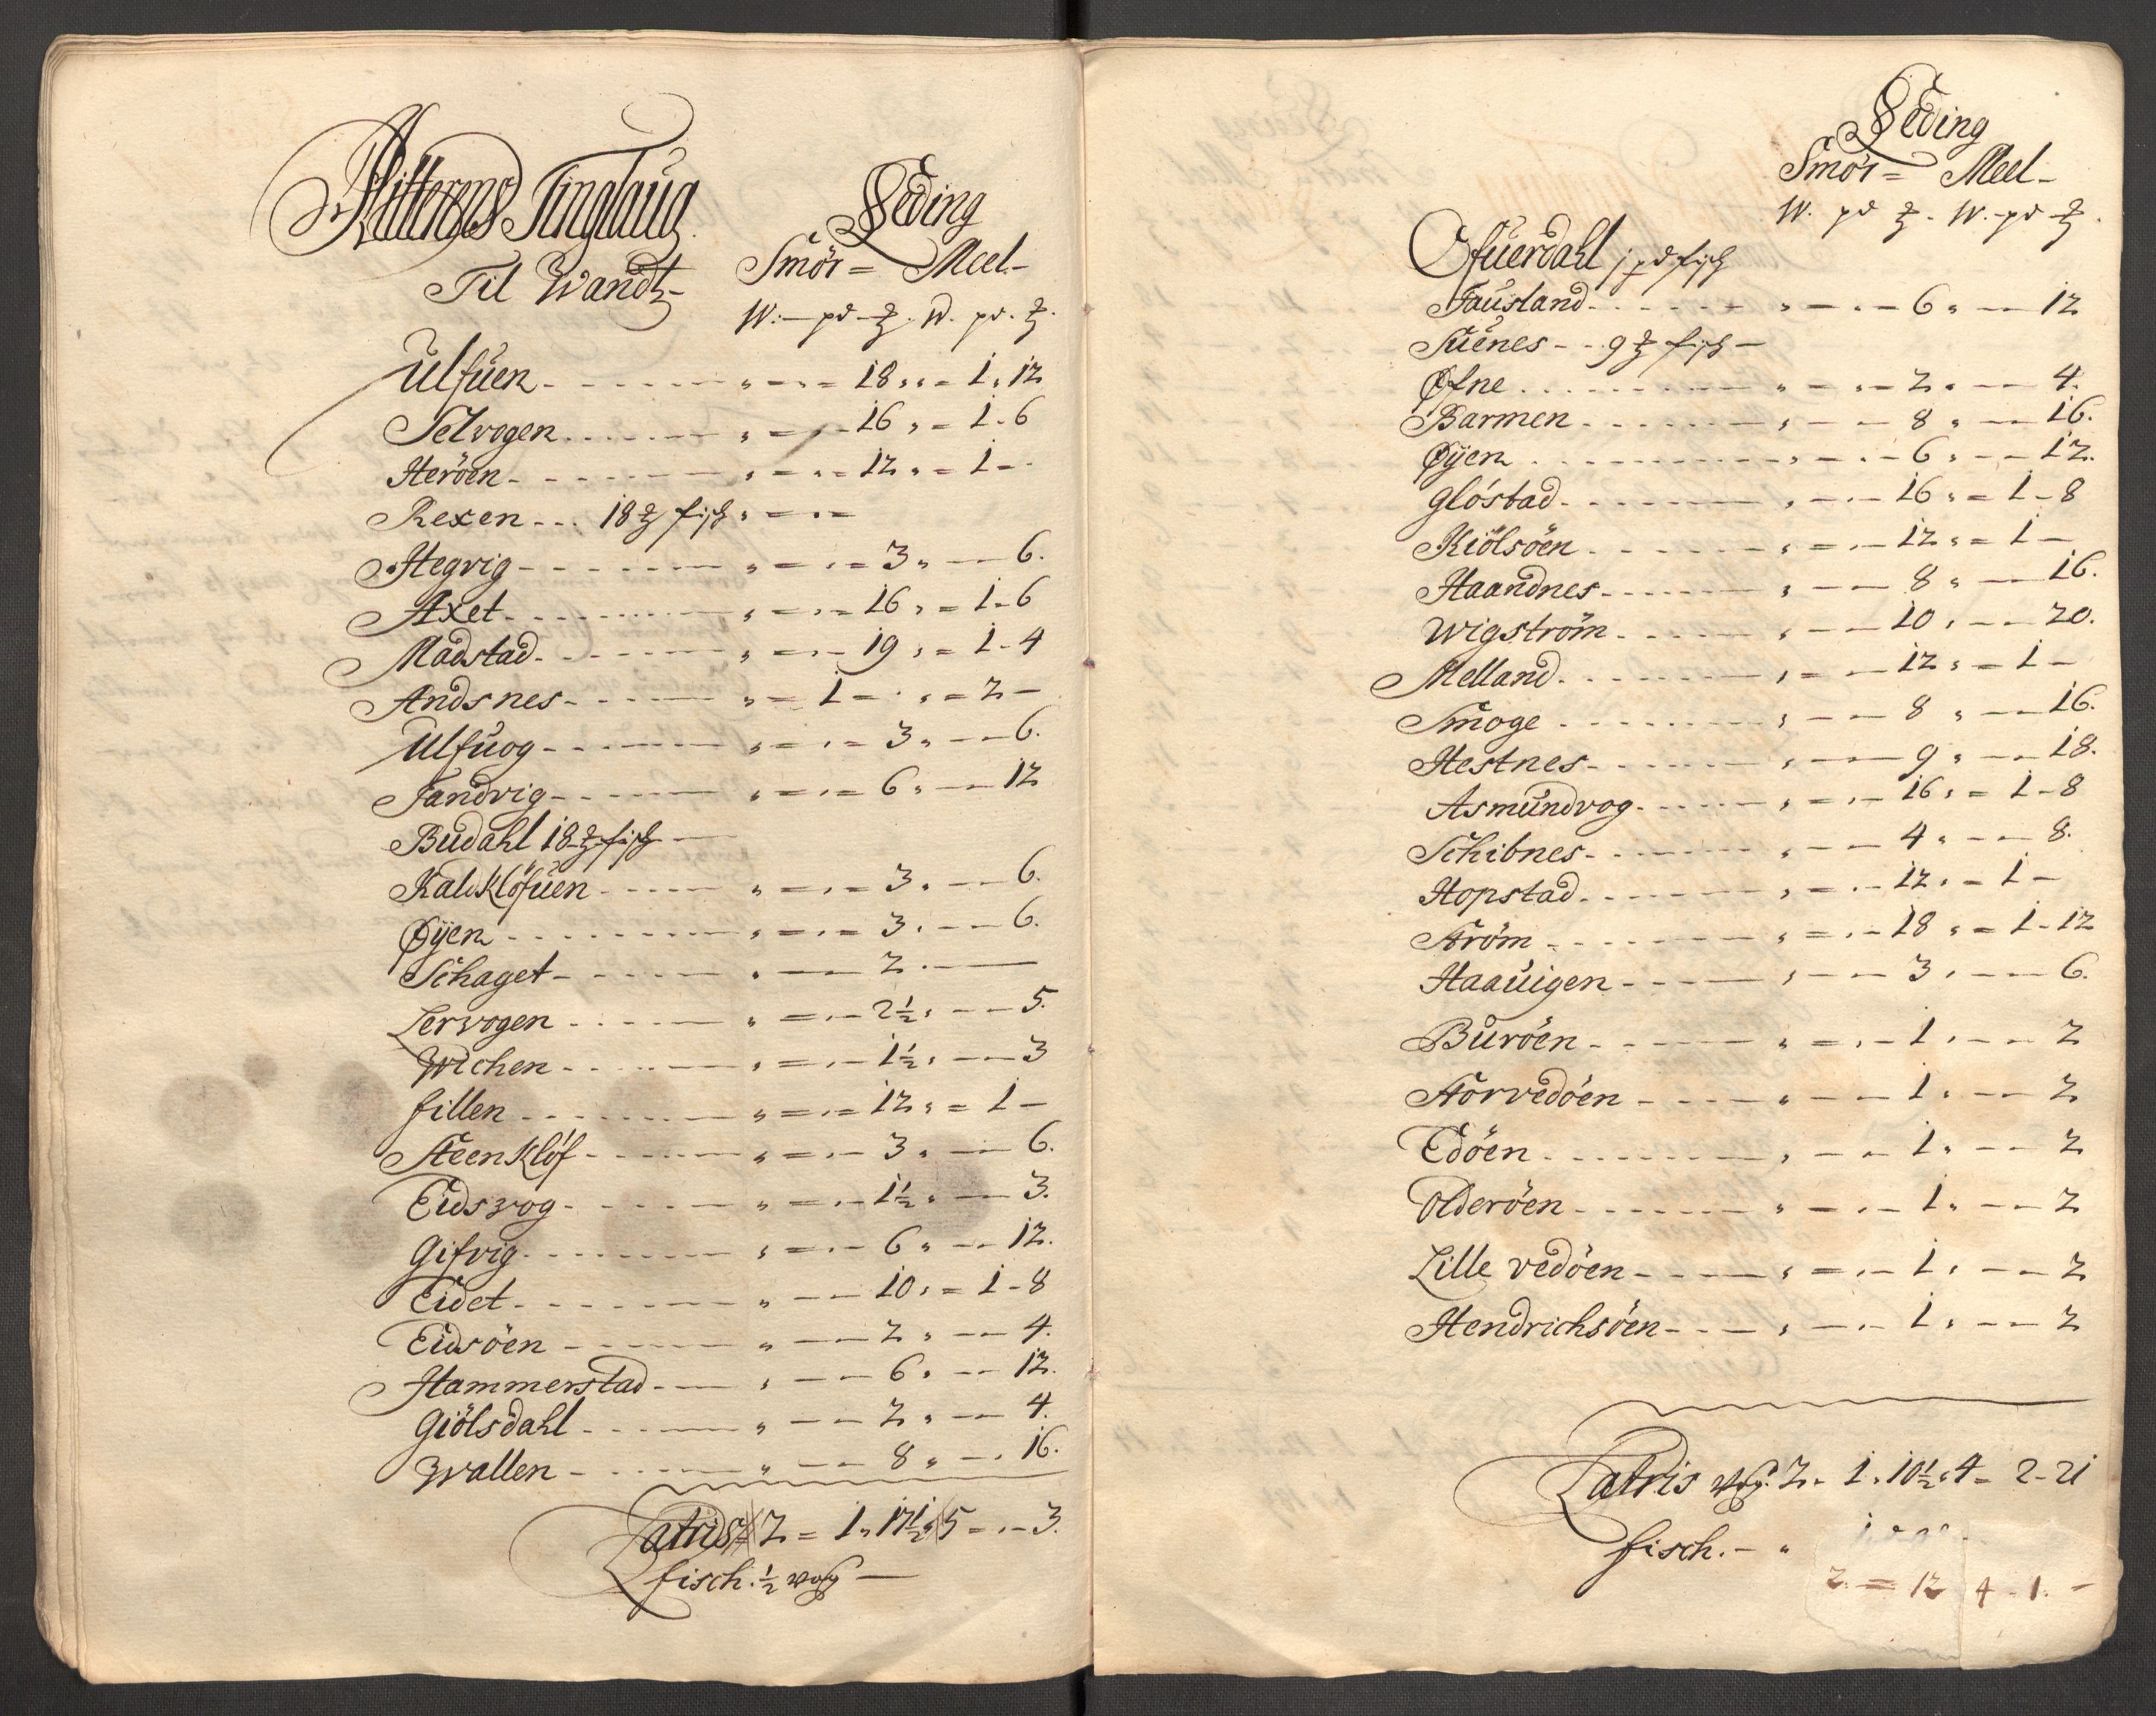 Hitterens Tinglaug
Til Wandz
Leding
Smör = Meel -
W. - pd - ℔. W. pd. ℔.
Ulfuen - - - - - „ - - - 18 „ = 1 „ 12
Selvogen - - - - - „ - - 16 „ = 1 - 6
Heröen - - - - - „ - - - 12 „ = 1 - -
Rexen - - . 18 ℔ fisch „ = - . -
Hegvig - - - - - „ = . = 3 „ - - 6.
Axet - - - - - „ = . - 16 „ = 1 - 6
Madstad - - - - - „ = . - 19 „ = 1 - 4
Andsnes - - - - - „ = 1 - . „ = 2 -
Ulfuog - - - - - „ = . = 3 „ - - 6.
Sandvig - - - - - „ = . = 6 „ - - 12
Budahl 18 ℔ fisch -
Kaldklöfuen - - - - - „ = . = 3 „ - - 6.
Øyen - - - - - „ = . = 3 „ - - 6.
Schaget - - - - - „ - - 2 . -
Lervogen - - - - - „ = . - 2½ „ - - 5.
Wichen - - - - - „ = . - 1½ „ - - 3
fillen - - - - - „ = . = 12 „ = 1 -
Steenklöf - - - - - „ = . - 3 „ - - 6.
Eidsvog - - - - - „ = . - 1½ „ - - 3.
Gifvig - - - - - „ = . - 6 „ - - 12.
Eidet - - - - - „ - - 10 „ = 1 - 8
Eidsöen - - - - - „ - - 2 „ - - 4.
Hammerstad - - - „ - - 6 „ - - 12.
Giölsdahl - - - - - „ - - 2 „ - - 4.
Wallen - - - - - „ - - 8 „ - . 16.
Latris 2 = 1 „ 17½ „ 5 = . - 3.
fisch. ½ wog -
Leding
Smör = Meel -
W. pd ℔. W. - pd ℔.
Ofuerdahl j pd fisch
Faustand - - - - - „ - . - 6 „ - - 12
Suenes - - 9 ℔ fisch -
Øfne - - - - - „ - . - 2 „ - - 4.
Barmen - - - - - „ - - 8 „ - - 16.
Øyen - - - - - „ - . - 6 „ - - 12.
Glöstad - - - - - „ - . - 16 „ = 1 - 8
Kiölsöen - - - - - „ = . - 12 „ = 1 -
Haandnes - - - - - „ - - 8 „ - - 16.
Wigström - - - - - „ - - 10 „ - - 20.
Melland - - - - - „ = - 12 „ = 1 -
Smoge - - - - - „ - - 8 „ - - 16.
Hestnes - - - - - „ - - 9 „ - - 18.
Asmundvog - - - - - „ = . - 16 „ = 1 - 8
Schibnes - - - - - „ - - 4 „ - - 8.
Hopstad - - - - - „ = . - 12 „ - 1 -
Ström - - - - - „ = . - 18 „ = 1 - 12
Haauigen - - - - - „ - - 3 „ - - 6.
Buröen - - - - - „ = . - 1 „ - - 2
Storvedöen - - - - - „ - - 1 „ - - 2
Edöen - - - - - „ - - 1 „ - - 2
Olderöen - - - - - „ - . - 1 „ - - 2
Lille vedöen - - - - - „ = . - 1 „ - - 2
Hendrichsöen - - - „ - . - 1 „ - - 2
Latris wog. 2 - 1 „ 10½ „ 4 = 2 - 21
fisch. - „
2. = 12 4 - 1. -